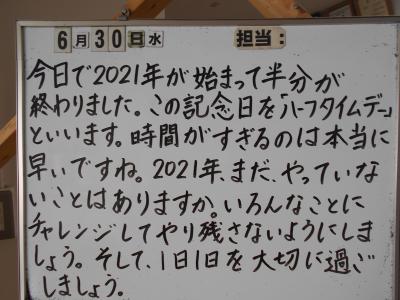 6月30日水 担当:
今日で2021年が始まって半分が
終わりました。この記念日を「ハーフタイムデー」
といいます。時間がすぎるのは本当に
早いですね。2021年、まだ、やっていな
いことはありますか。いろんなことに
チャレンジしてやり残さないようにしま
しょう。そして、1日1日を大切に過ご
しましょう。